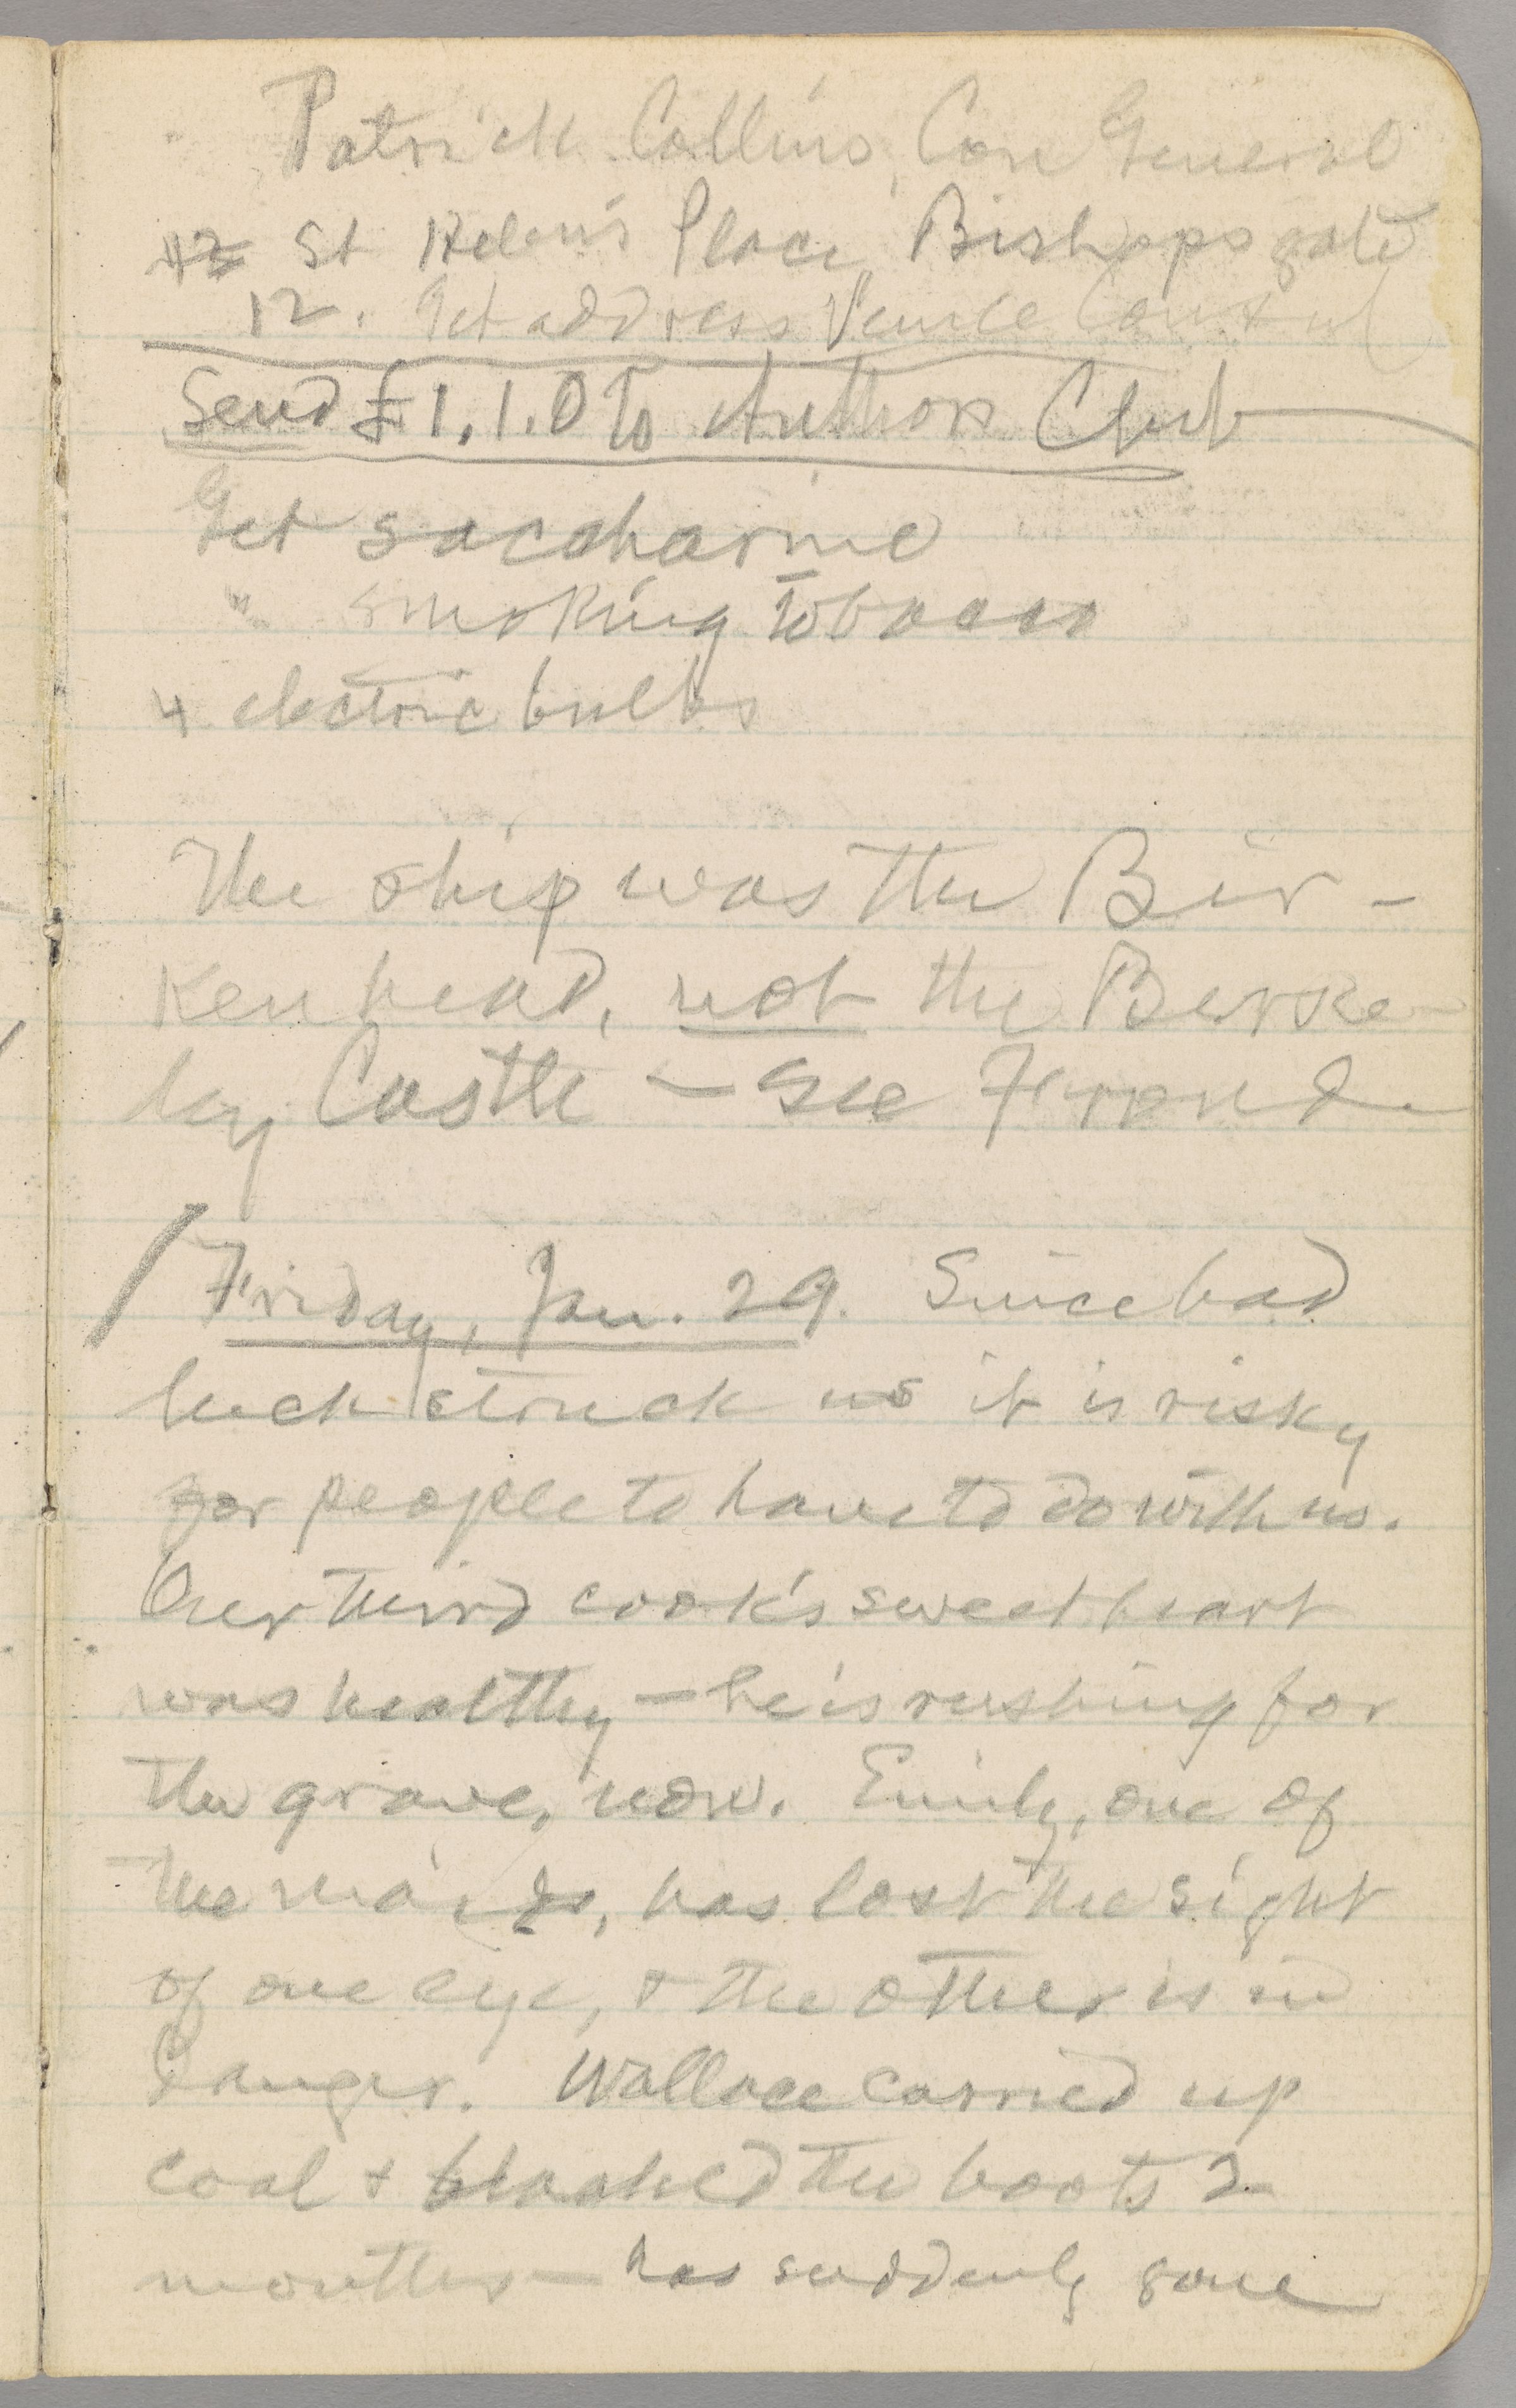 Patrick Collins, Con General
St Helen's Place, Bishopsgate
12. Get address Venice Consul
Send £1.1.0 to Authors Club
Get saccharine
" smoking tobacco
4 electric bulbs
The ship was the Bir-
kenhead, not the Berke-
ley Castle — See Ferond
Friday, Jan. 29. Since bad
luck struck us it is risky
for people to have to do with us.
Our third cook's sweetheart
was healthy — he is rushing for
the grave, now. Emily, one of
the maids, has lost the sight
of one eye, & the other is in
danger. Wallace carried up
coal & blacked the boots 2
months — has suddenly gone